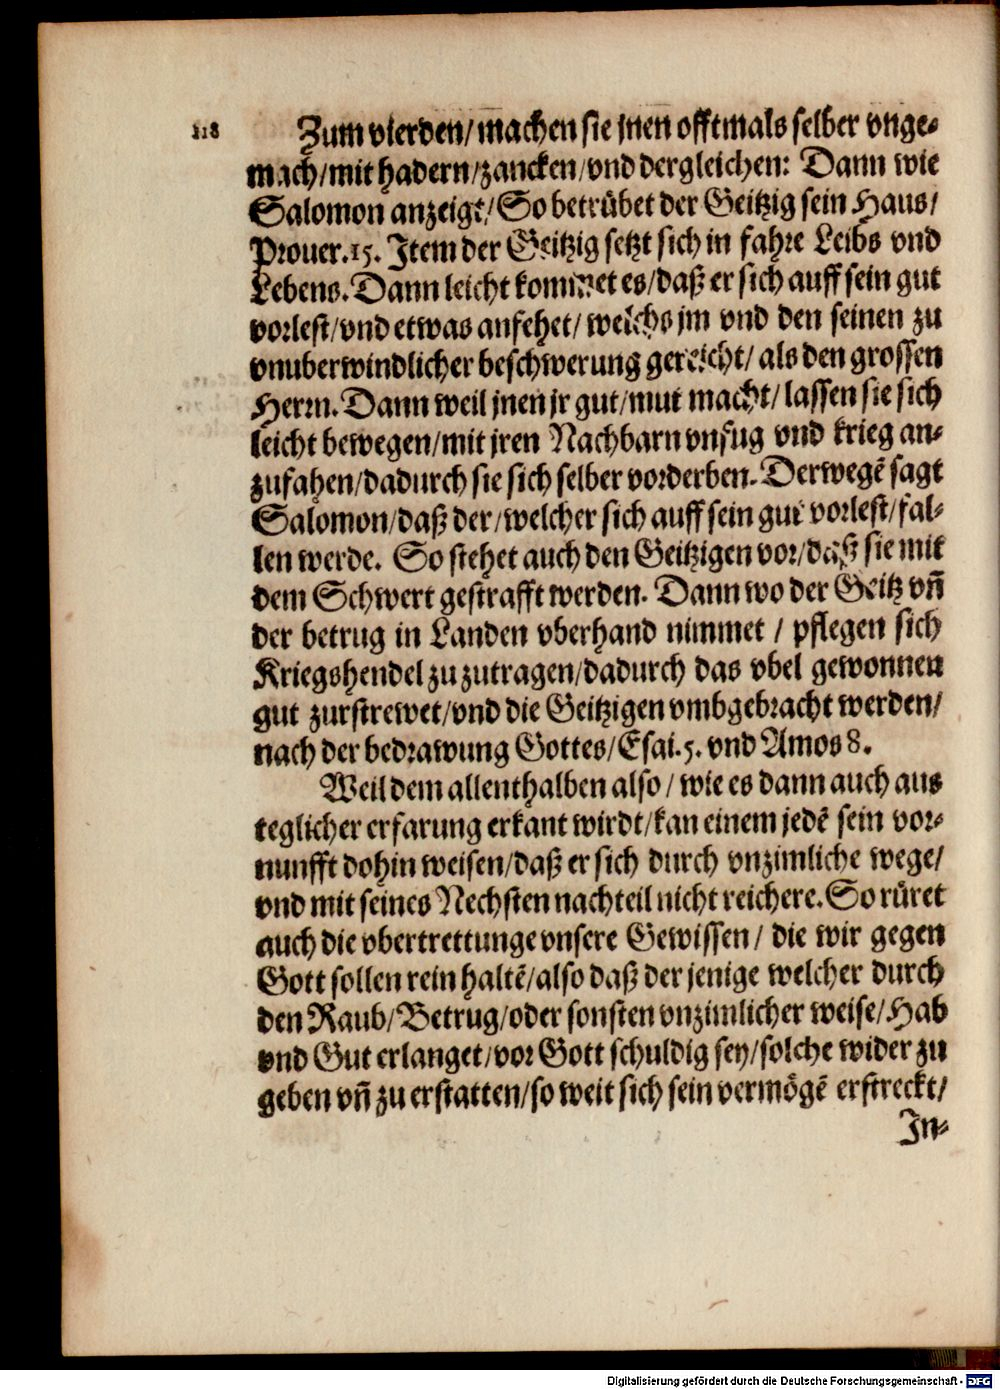 118
Zum vierden/ machen sie jnen offtmals selber vnge-
mach/mit hadern/zancken/vnd dergleichen: Dann wie
Salomon anzeigt/So betrübet der Geitzig sein Haus/
Prouer.15. Item der Geitzig setzt sich in fahre Leibs vnd
Lebens. Dann leicht kommet es/daß er sich auff sein gut
vorlest/vnd etwas anfehet/ welchs jm vnd den seinen zu
vnuberwindlicher beschwerung gereicht/ als den grossen
Herrn. Dann weil jnen jr gut/mut macht/ lassen sie sich
leicht bewegen/mit jren Nachbarn vnfug vnd krieg an-
zufahen/dadurch sie sich selber vorderben. Derwegẽ sagt
Salomon/daß der/welcher sich auff sein gut vorlest/fal-
len werde. So stehet auch den Geitzigen vor/daß sie mit
dem Schwert gestrafft werden. Dann wo der Geitz vñ
der betrug in Landen vberhand nimmet / pflegen sich
Kriegshendel zu zutragen/dadurch das vbel gewonnen
gut zurstrewet/vnd die Geitzigen vmbgebracht werden/
nach der bedrawung Gottes/Esai.5. vnd Amos 8.
Weil dem allenthalben also / wie es dann auch aus
teglicher erfarung erkant wirdt/kan einem jedẽ sein vor-
nunfft dohin weisen/daß er sich durch vnzimliche wege/
vnd mit seines Nechsten nachteil nicht reichere. So rüret
auch die vbertrettunge vnsere Gewissen/ die wir gegen
Gott sollen rein haltẽ/also daß der jenige welcher durch
den Raub/Betrug/oder sonsten vnzimlicher weise/Hab
vnd Gut erlanget/vor Gott schuldig sey/solche wider zu
geben vñ zu erstatten/so weit sich sein vermögẽ erstreckt/
In-
Digitalisierung gefördert durch die Deutsche Forschungsgemeinschaft - DFG